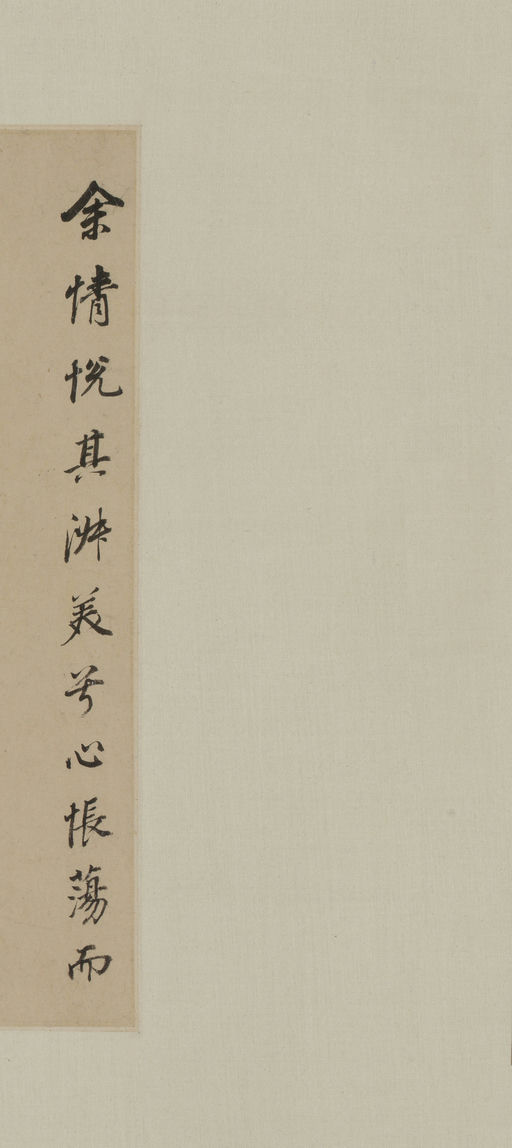 余情悦其淑美兮心悵蕩而